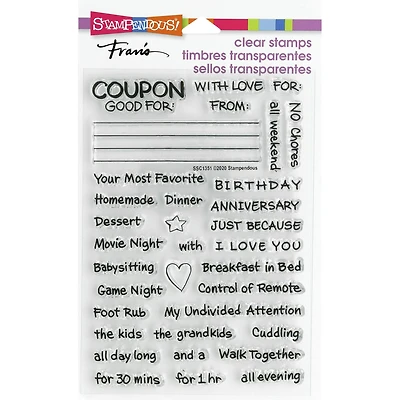 STAMPENDOUS!®
Fran's
clear stamps
timbres transparentes
sellos transparentes
COUPON WITH LOVE FOR:
GOOD FOR: FROM:
all weekend
NO Chores
SSC1351 ©2020 Stampendous
Your Most Favorite BIRTHDAY
Homemade Dinner ANNIVERSARY
Dessert JUST BECAUSE
Movie Night with I LOVE YOU
Babysitting Breakfast in Bed
Game Night Control of Remote
Foot Rub My Undivided Attention
the kids the grandkids Cuddling
all day long and a Walk Together
for 30 mins for 1 hr all evening